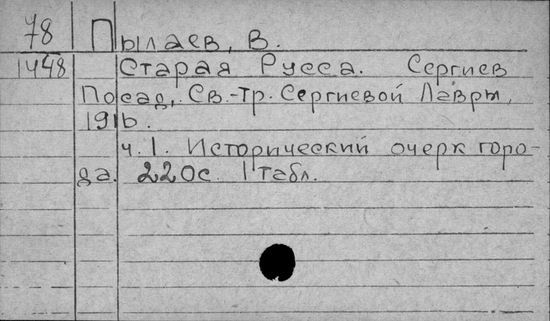 78 Пылаев, В.
1448 Старая Русса. Сергиев
Посад, Св.-Тр. Сергиевой Лавры,
1916.
ч.1. Исторический очерк горо-
да. 220с. 1 табл.